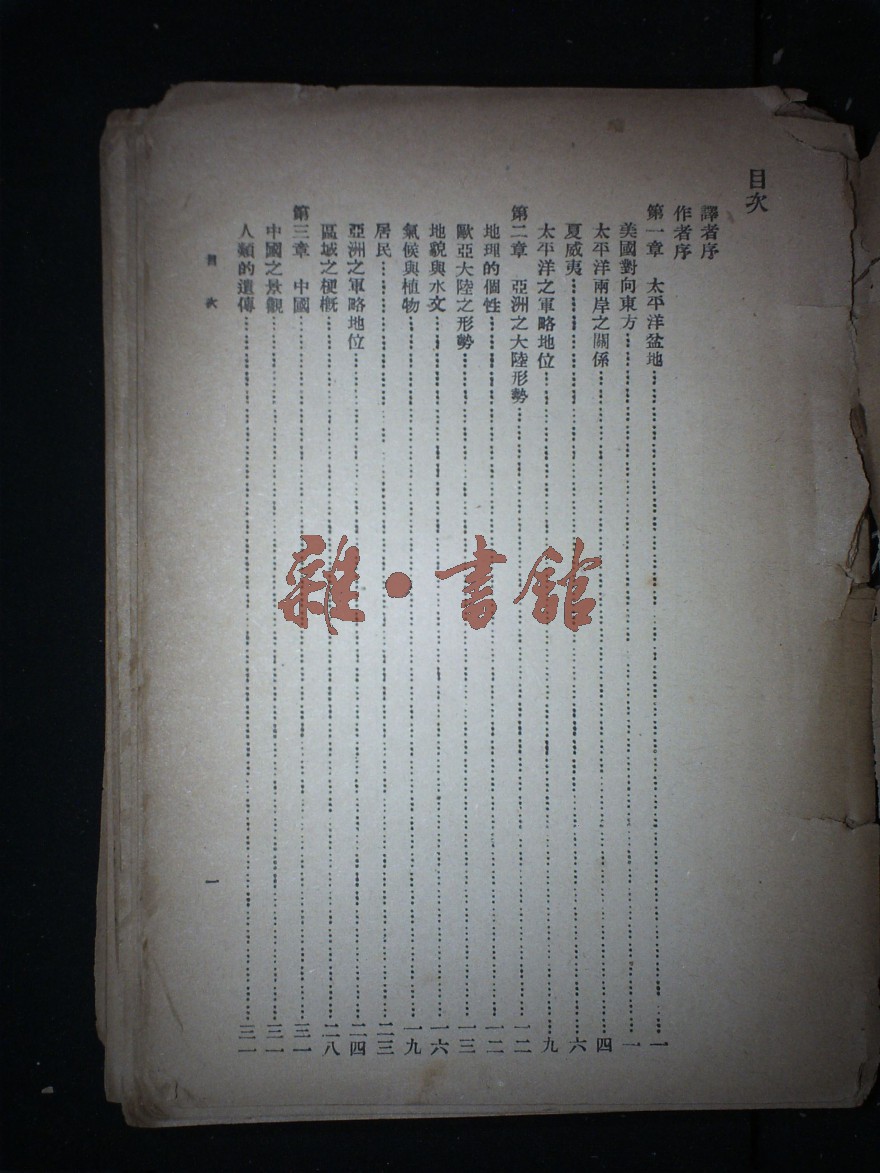 目次
譯者序
作者序
第一章　太平洋盆地……一
美國對向東方……一
太平洋兩岸之關係……四
夏威夷……六
太平洋之軍略地位……九
第二章　亞洲之大陸形勢……一二
地理的個性……一二
歐亞大陸之形勢……一三
地貌與水文……一六
氣候與植物……一九
居民……二三
亞洲之軍略地位……二四
區域之梗概……二八
第三章　中國……三一
中國之景觀……三一
人類的遺傳……三一
目次
一
雜·書館